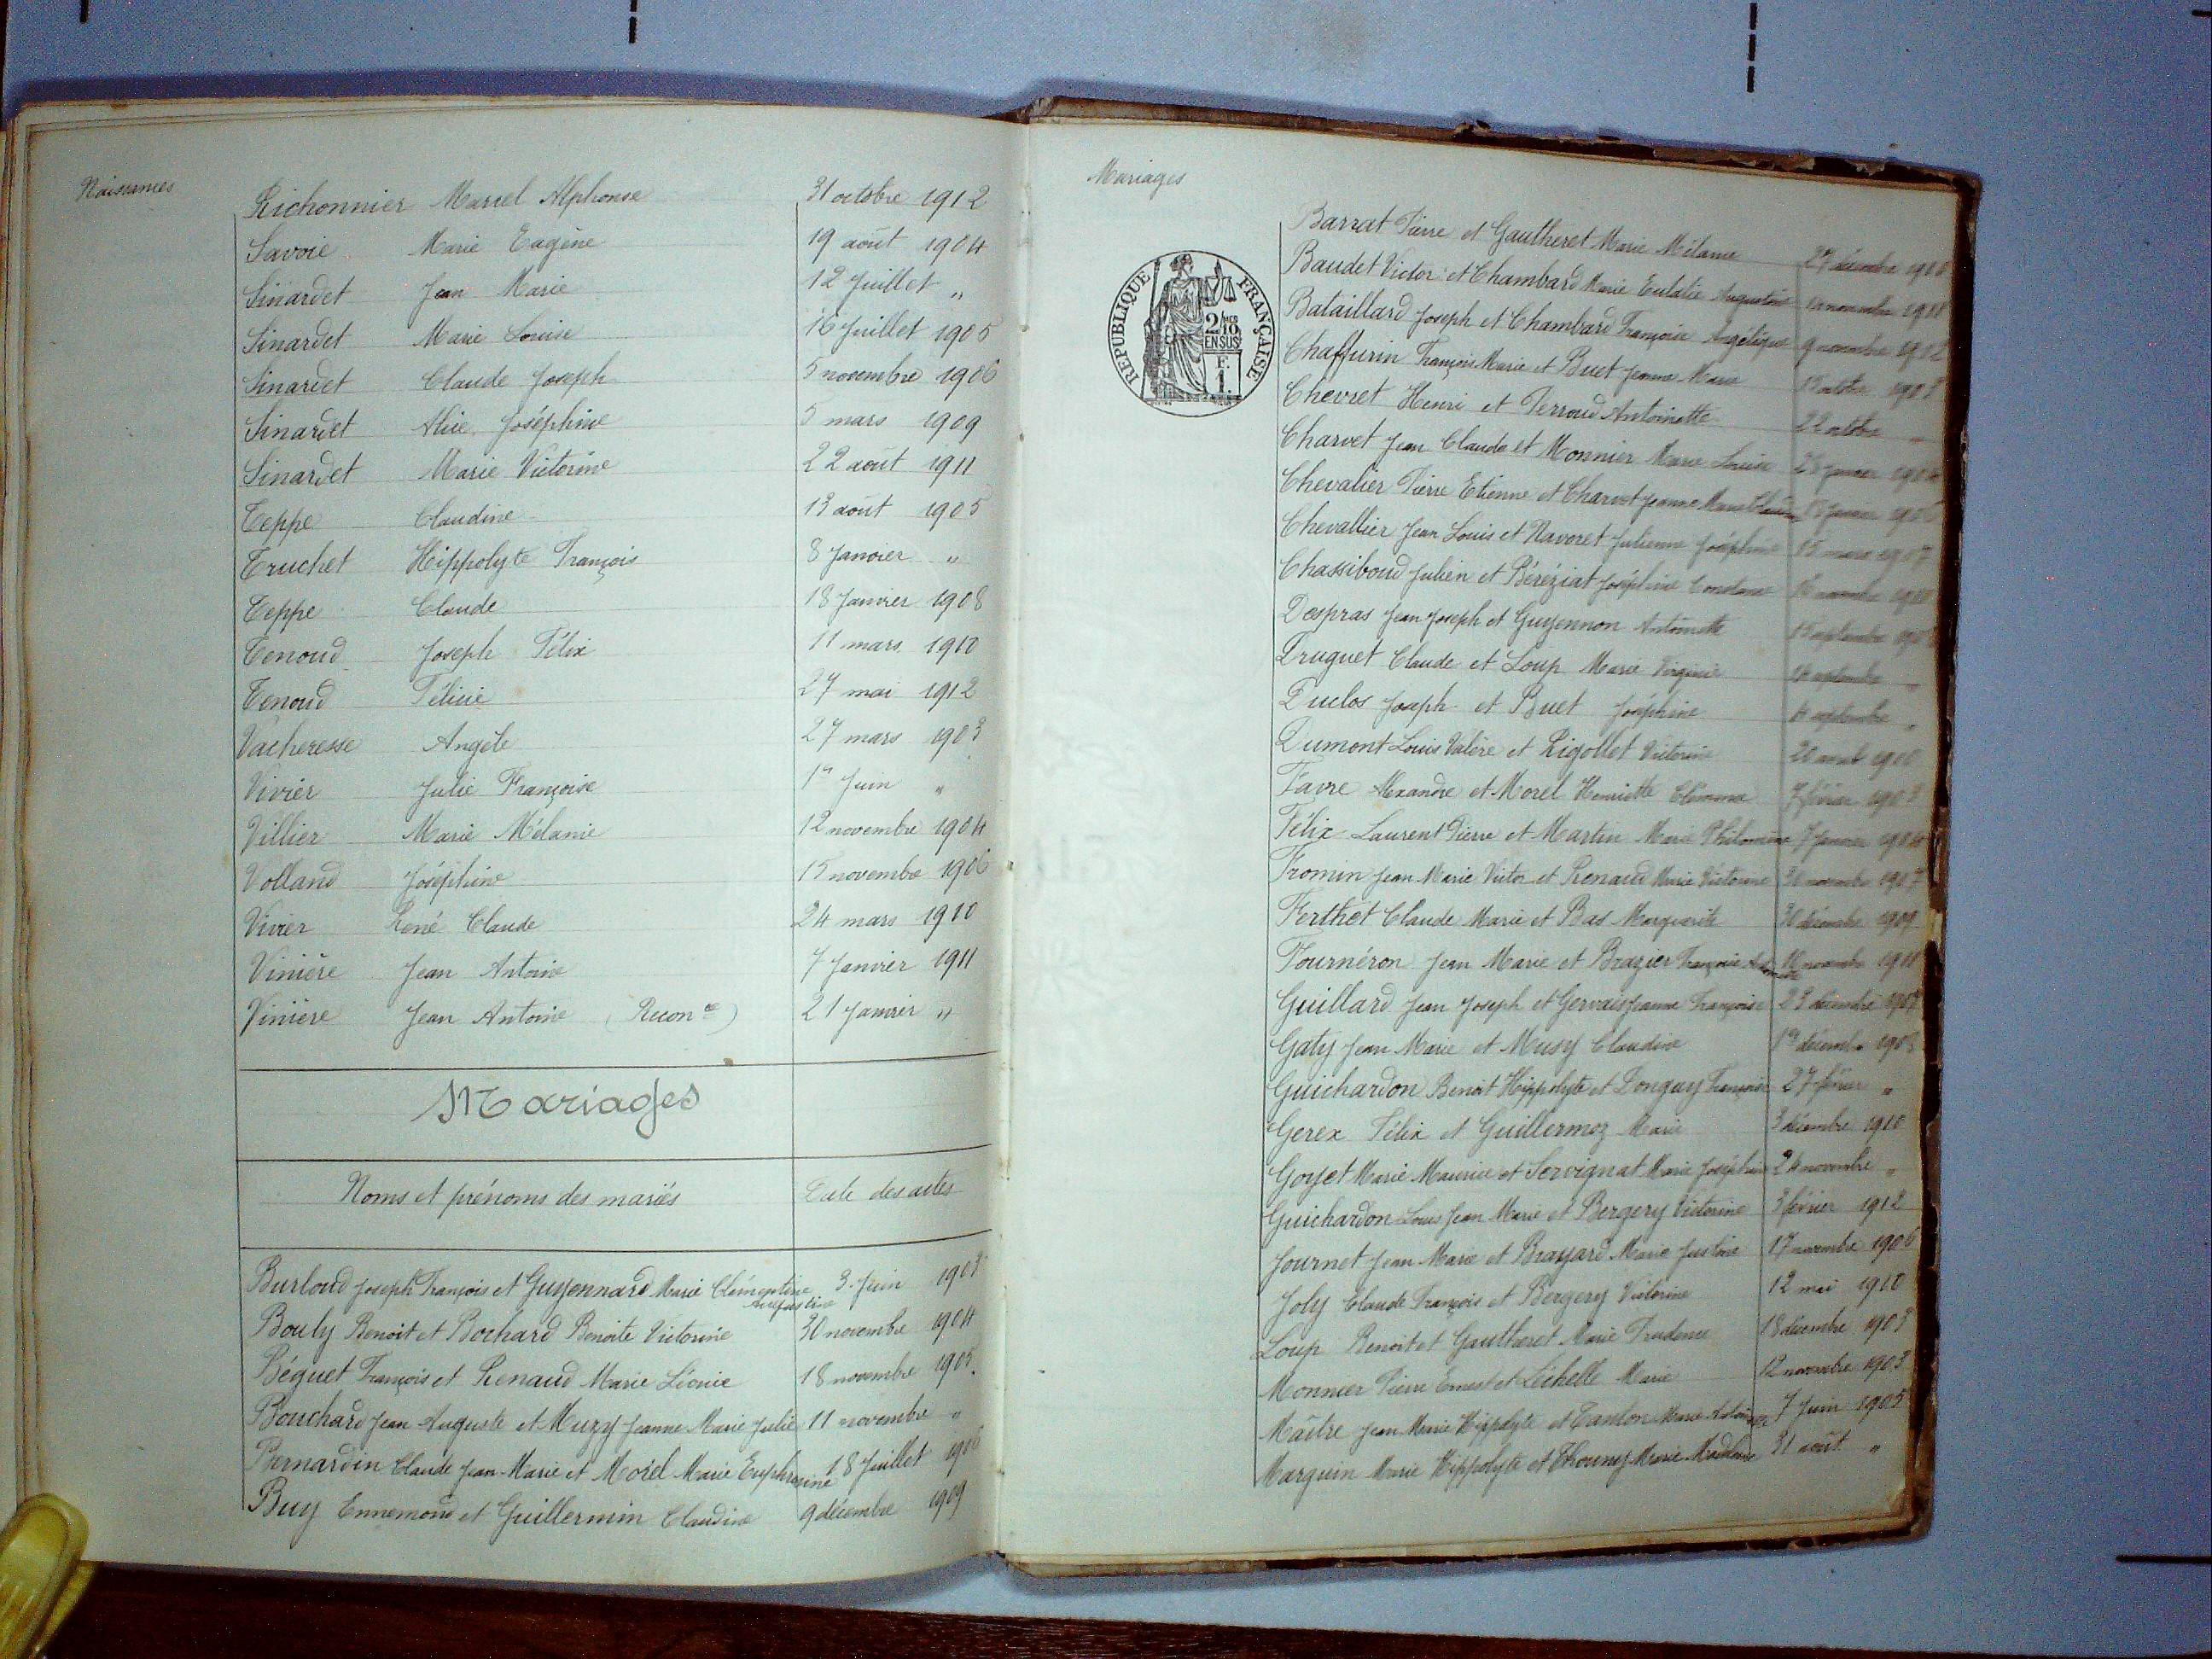 Naissances
Richonnier Marcel Alphonse 31 octobre 1912
Savoie Marie Eugène 19 août 1904
Sinardet Jean Marie 12 Juillet "
Sinardet Marie Louise 16 Juillet 1905
Sinardet Claude Joseph 5 novembre 1906
Sinardet Alice Joséphine 5 mars 1909
Sinardet Marie Victorine 22 août 1911
Teppe Claudine 13 août 1905
Truchet Hippolyte François 8 Janvier "
Teppe Claude 18 Janvier 1908
Tenoud Joseph Félix 11 mars 1910
Tenoud Félicie 27 mai 1912
Vacheresse Angèle 27 mars 1903
Vivier Julie Françoise 1er Juin "
Villier Marie Mélanie 12 novembre 1904
Volland Joséphine 15 novembre 1906
Vivier René Claude 24 mars 1910
Vinière Jean Antoine 7 Janvier 1911
Vinière Jean Antoine (Recon ce) 21 Janvier "
Mariages
Noms et prénoms des mariés Date des actes
Burloud Joseph François et Guyennard Marie Clémentine Augustine 3 Juin 1903
Bouly Benoit et Bochard Benoite Victorine 30 novembre 1904
Béguet François et Renaud Marie Léonie 18 novembre 1905
Bouchard Jean Auguste et Muzy Jeanne Marie Julie 11 novembre "
Bernardin Claude Jean-Marie et Morel Marie Euphrosine 18 Juillet
Buy Ennemond et Guillermin Claudine 9 décembre 1909
Mariages
REPUBLIQUE FRANÇAISE
2/10 EN SUS
F. 1.
Barrat Pierre et Gautheret Marie Mélanie 27 décembre
Baudet Victor et Chambard Marie Eulalie Augustine novembre 1911
Bataillard Joseph et Chambard Françoise Angélique 9 novembre 1912
Chaffurin François Marie et Buet Jeanne Marie octobre 1903
Chevret Henri et Perroud Antoinette 22 octobre "
Charvet Jean Claude et Monnier Marie Louise 1904
Chevalier Pierre Etienne et Charvet Jeanne Marie
Chevallier Jean Louis et Navoret Julienne Joséphine 15 mars 1907
Chassiboud Julien et Béréziat Joséphine novembre
Despras Jean Joseph et Guyennon Antoinette septembre
Druguet Claude et Loup Marie Virginie septembre "
Duclos Joseph et Buet Joséphine septembre "
Dumont Louis Valère et Rigollet Victorine 1910
Favre Alexandre et Morel Henriette 7 février 1903
Félix Laurent Pierre et Martin Marie Philomène 7 Janvier 1904
Fromin Jean Marie Victor et Renaud Marie Victorine 30 novembre 1907
Ferthet Claude Marie et Bas Marguerite 30 décembre 1909
Fournéron Jean Marie et Brazier Françoise novembre 1911
Guillard Jean Joseph et Gervais Jeanne Françoise 23 décembre
Gaty Jean Marie et Musy Claudine décembre
Guichardon Benoit Hippolyte et Donguy Françoise 27 février "
Gerex Félix et Guillermoz Marie 3 décembre 1910
Goyet Marie Maurice et Servignat Marie Joséphine 24 novembre "
Guichardon Louis Jean Marie et Bergery Victorine 3 février 1912
Journet Jean Marie et Brayard Marie Justine 17 novembre 1906
Joly Claude François et Bergery Victorine 12 mai 1910
Loup Benoit et Gautheret Marie Prudence 18 décembre 1903
Monnier Pierre Ernest et Léchelle Marie 12 novembre 1903
Maître Jean Marie Hippolyte et Tanton Marie 7 Juin 1905
Marguin Marie Hippolyte et Thouny Marie 31 août "